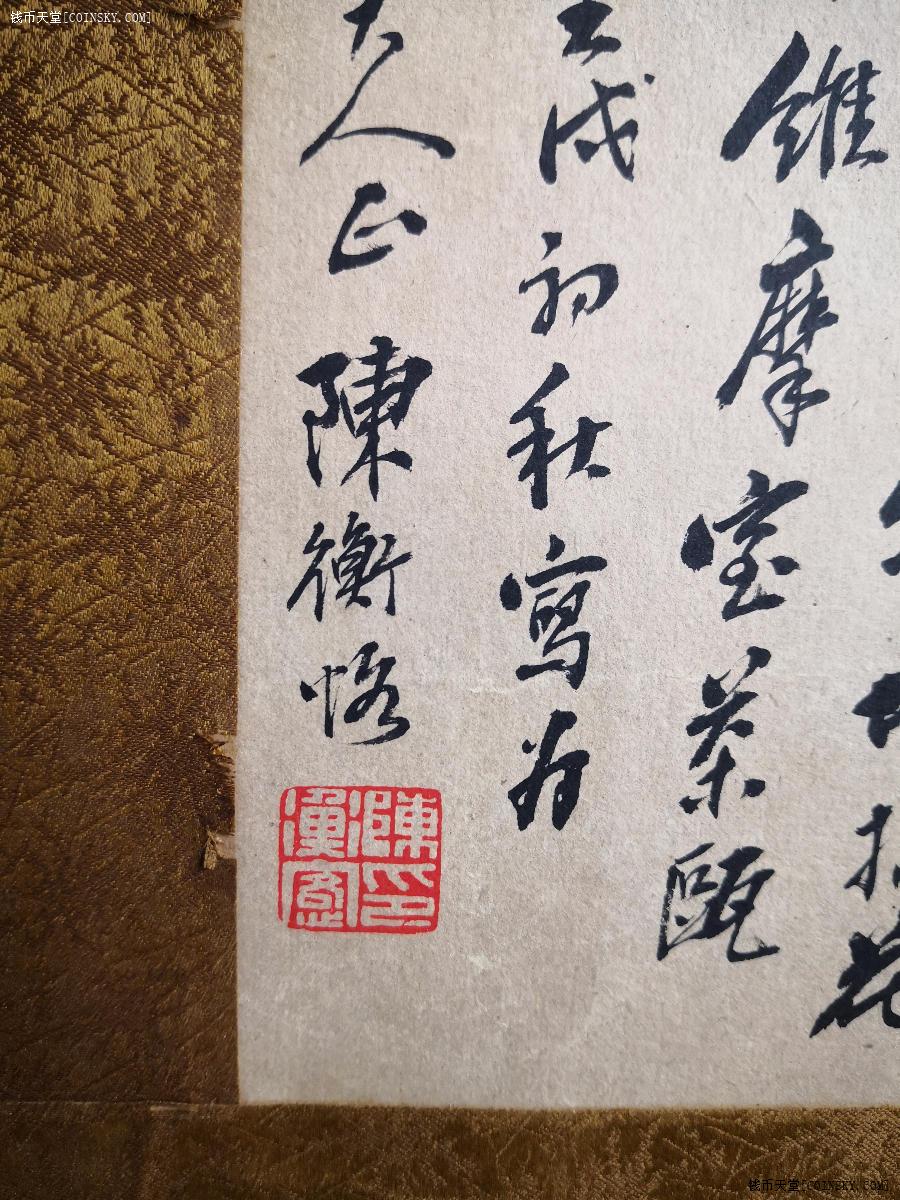 钱币天堂[COINSKY.COM]
花
維摩室茶甌
戌初秋寫為
大人正 陳衡恪
陳印
衡恪
钱币天堂[COINSKY.COM]